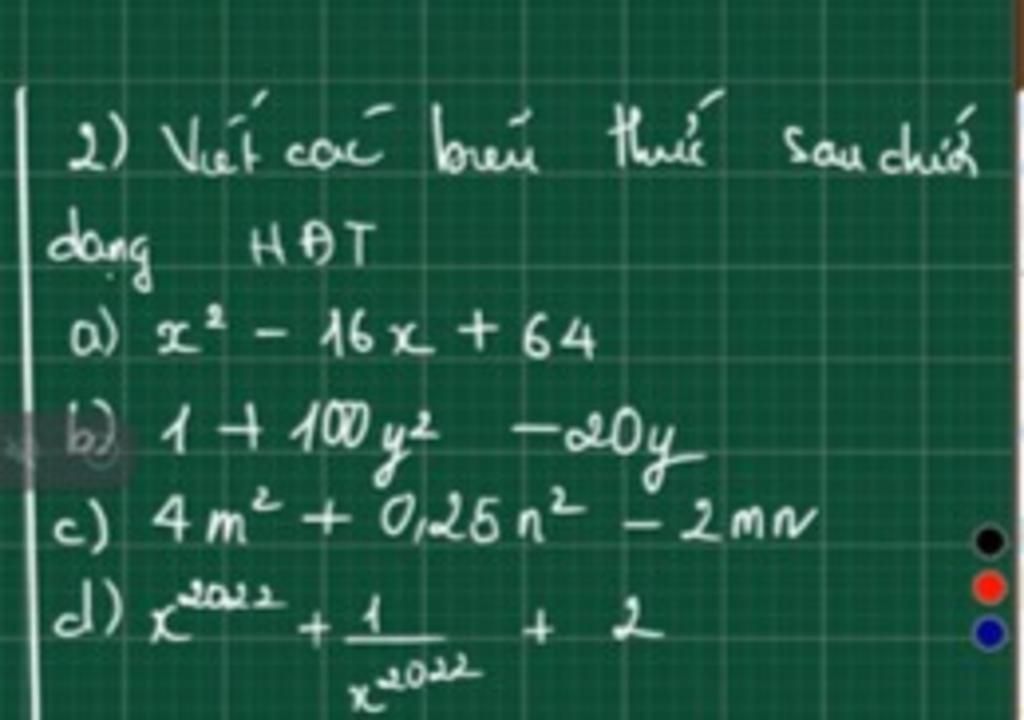 2) Viết các biểu thức sau dưới
dạng HĐT
a) x² - 16x + 64
b) 1 + 100y² - 20y
c) 4m² + 0,25n² - 2mn
d) x²⁰²² + 1/x²⁰²² + 2